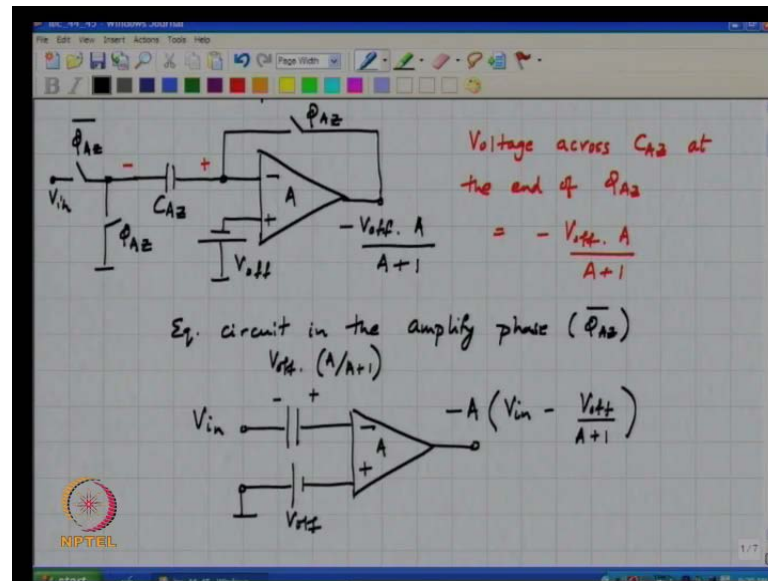 ipc_44_45 - Windows Journal
File Edit View Insert Actions Tools Help
Page Width
B I
Φ̅AZ
ΦAZ
Vin
-
+
CAZ
ΦAZ
-
A
+
Voff
- Voff. A / A+1
Voltage across CAZ at
the end of ΦAZ
= - Voff. A / A+1
Eq. circuit in the amplify phase (Φ̅AZ)
Voff. (A/A+1)
Vin
-
+
-
A
+
Voff
-A (Vin - Voff / A+1)
NPTEL
1/7
start